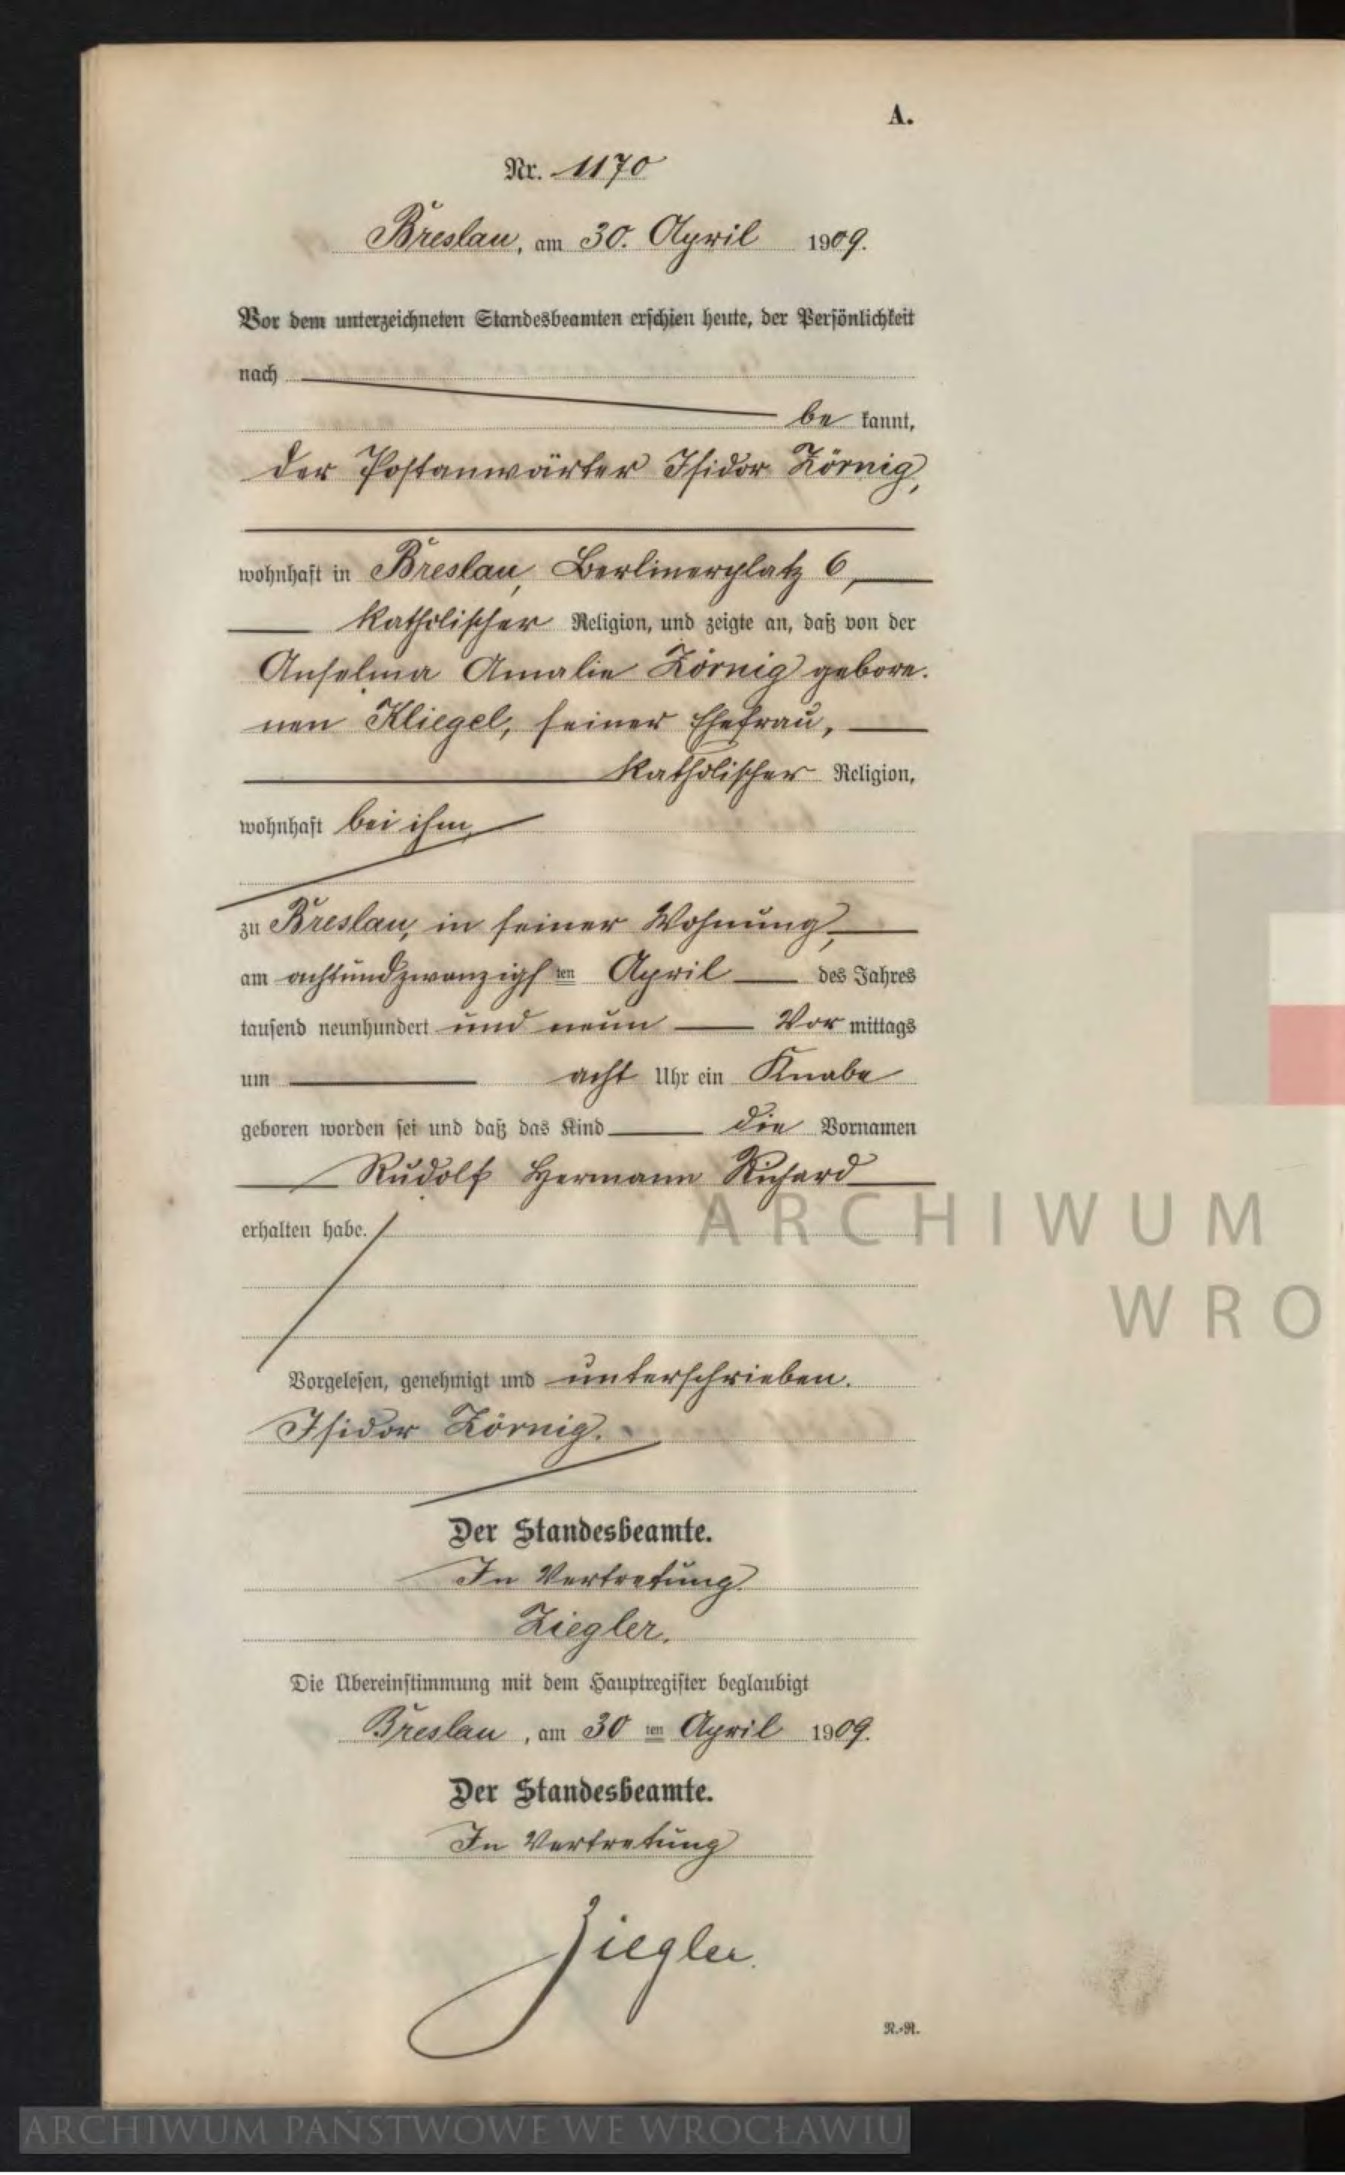 A.
Nr. 1170
Breslau, am 30. April 1909.
Vor dem unterzeichneten Standesbeamten erschien heute, der Persönlichkeit
nach
be kannt,
der Postanwärter Isidor Zörnig,
wohnhaft in Breslau, Berlinerplatz 6,
katholischer Religion, und zeigte an, daß von der
Anselma Amalie Zörnig gebore-
nen Kliegel, seiner Ehefrau,
katholischer Religion,
wohnhaft bei ihm
zu Breslau, in seiner Wohnung,
am achtundzwanzigs ten April des Jahres
tausend neunhundert und neun Vor mittags
um acht Uhr ein Knabe
geboren worden sei und daß das Kind die Vornamen
Rudolf Hermann Richard
erhalten habe.
Vorgelesen, genehmigt und unterschrieben.
Isidor Zörnig.
Der Standesbeamte.
In Vertretung.
Ziegler.
Die Übereinstimmung mit dem Hauptregister beglaubigt
Breslau, am 30 ten April 1909.
Der Standesbeamte.
In Vertretung
Ziegler.
R.-R.
ARCHIWUM
WRO
ARCHIWUM PAŃSTWOWE WE WROCŁAWIU